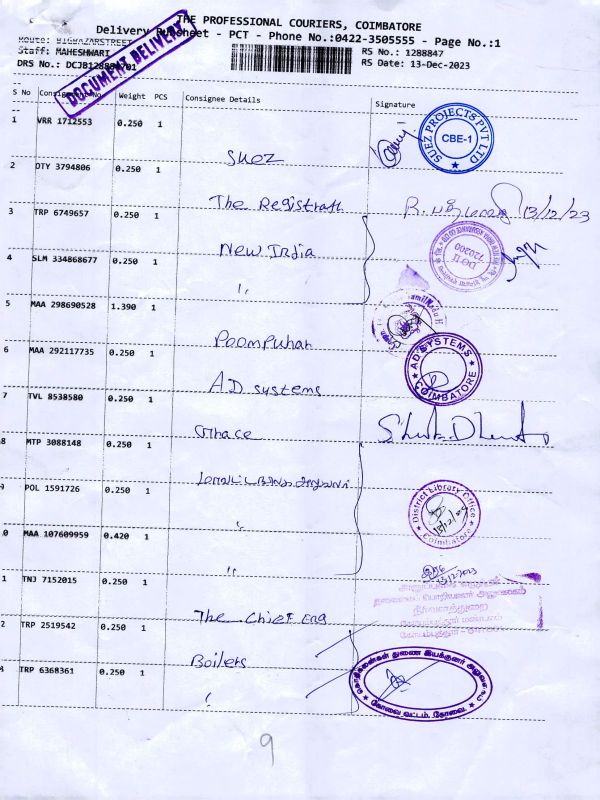 THE PROFESSIONAL COURIERS, COIMBATORE
Delivery RunSheet - PCT - Phone No.:0422-3505555 - Page No.:1
DOCUMENT DELIVERY
Staff: MAHESHWARI
RS No.: 1288847
RS Date: 13-Dec-2023
S No Consignment No. Weight PCS Consignee Details Signature
1 VRR 1712553 0.250 1
Suez
SUEZ PROJECTS PVT LTD
CBE-1
2 DTY 3794806 0.250 1
The Registrar
13/12/23
3 TRP 6749657 0.250 1
New India
DO II
720200
4 SLM 334868677 0.250 1
〃
5 MAA 298690528 1.390 1
Poompuhar
6 MAA 292117735 0.250 1
AD systems
AD SYSTEMS
COIMBATORE
7 TVL 8538580 0.250 1
Grace
8 MTP 3088148 0.250 1
9 POL 1591726 0.250 1
〃
District Library Office
Coimbatore
0 MAA 107609959 0.420 1
〃
13/12/2023
1 TNJ 7152015 0.250 1
The Chief Eng
2 TRP 2519542 0.250 1
Boilers
TRP 6368361 0.250 1
கோவை வட்டம், கோவை.
9